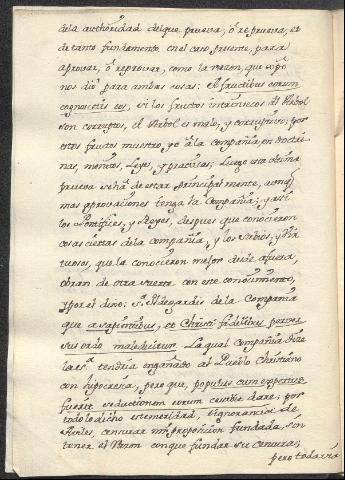 de la authoridad del que prueva, ò reprueva, es
de tanto fundamento en el caso presente, para
aprovar, ò reprovar, como la razon, que xpõ
nos diò para ambas cosas: A fructibus eorum
cognoscetis eos, si los fructos intrinsecos del Arbol
son corruptos, el Arbol es malo, y corruptivo; por
estos frutos muestro yo à la Compañia, en doctri-
nas, monitos, Leyes, y practicas; Luego esta ultima
prueva se hà de estar principalmente, aunq̃
mas aprovaciones tenga la Compañia; y assi
los Pontifices, y Reyes, despues que conocieron
cosas ciertas de la Compañia, y los Sabios, y Vir-
tuosos, que la conocieron mejor desde afuera,
obran de otra suerte con este conocimiento,
y por el dixo: S.ta Ildegardis de la Compañia
que a sapientibus, et Christi fidelibus perver-
sus ordo maledicetur. La qual Compañia dize
tendria engañado al Pueblo Christiano
con hipocresia, pero que, populus cum expertus
fuerit seductionem eorum cessabit dare; por
todo lo dicho es temeridad, è ignorancia de
censurar mi proposicion fundada, sin
tener el con que fundar su censura;
pero todavia